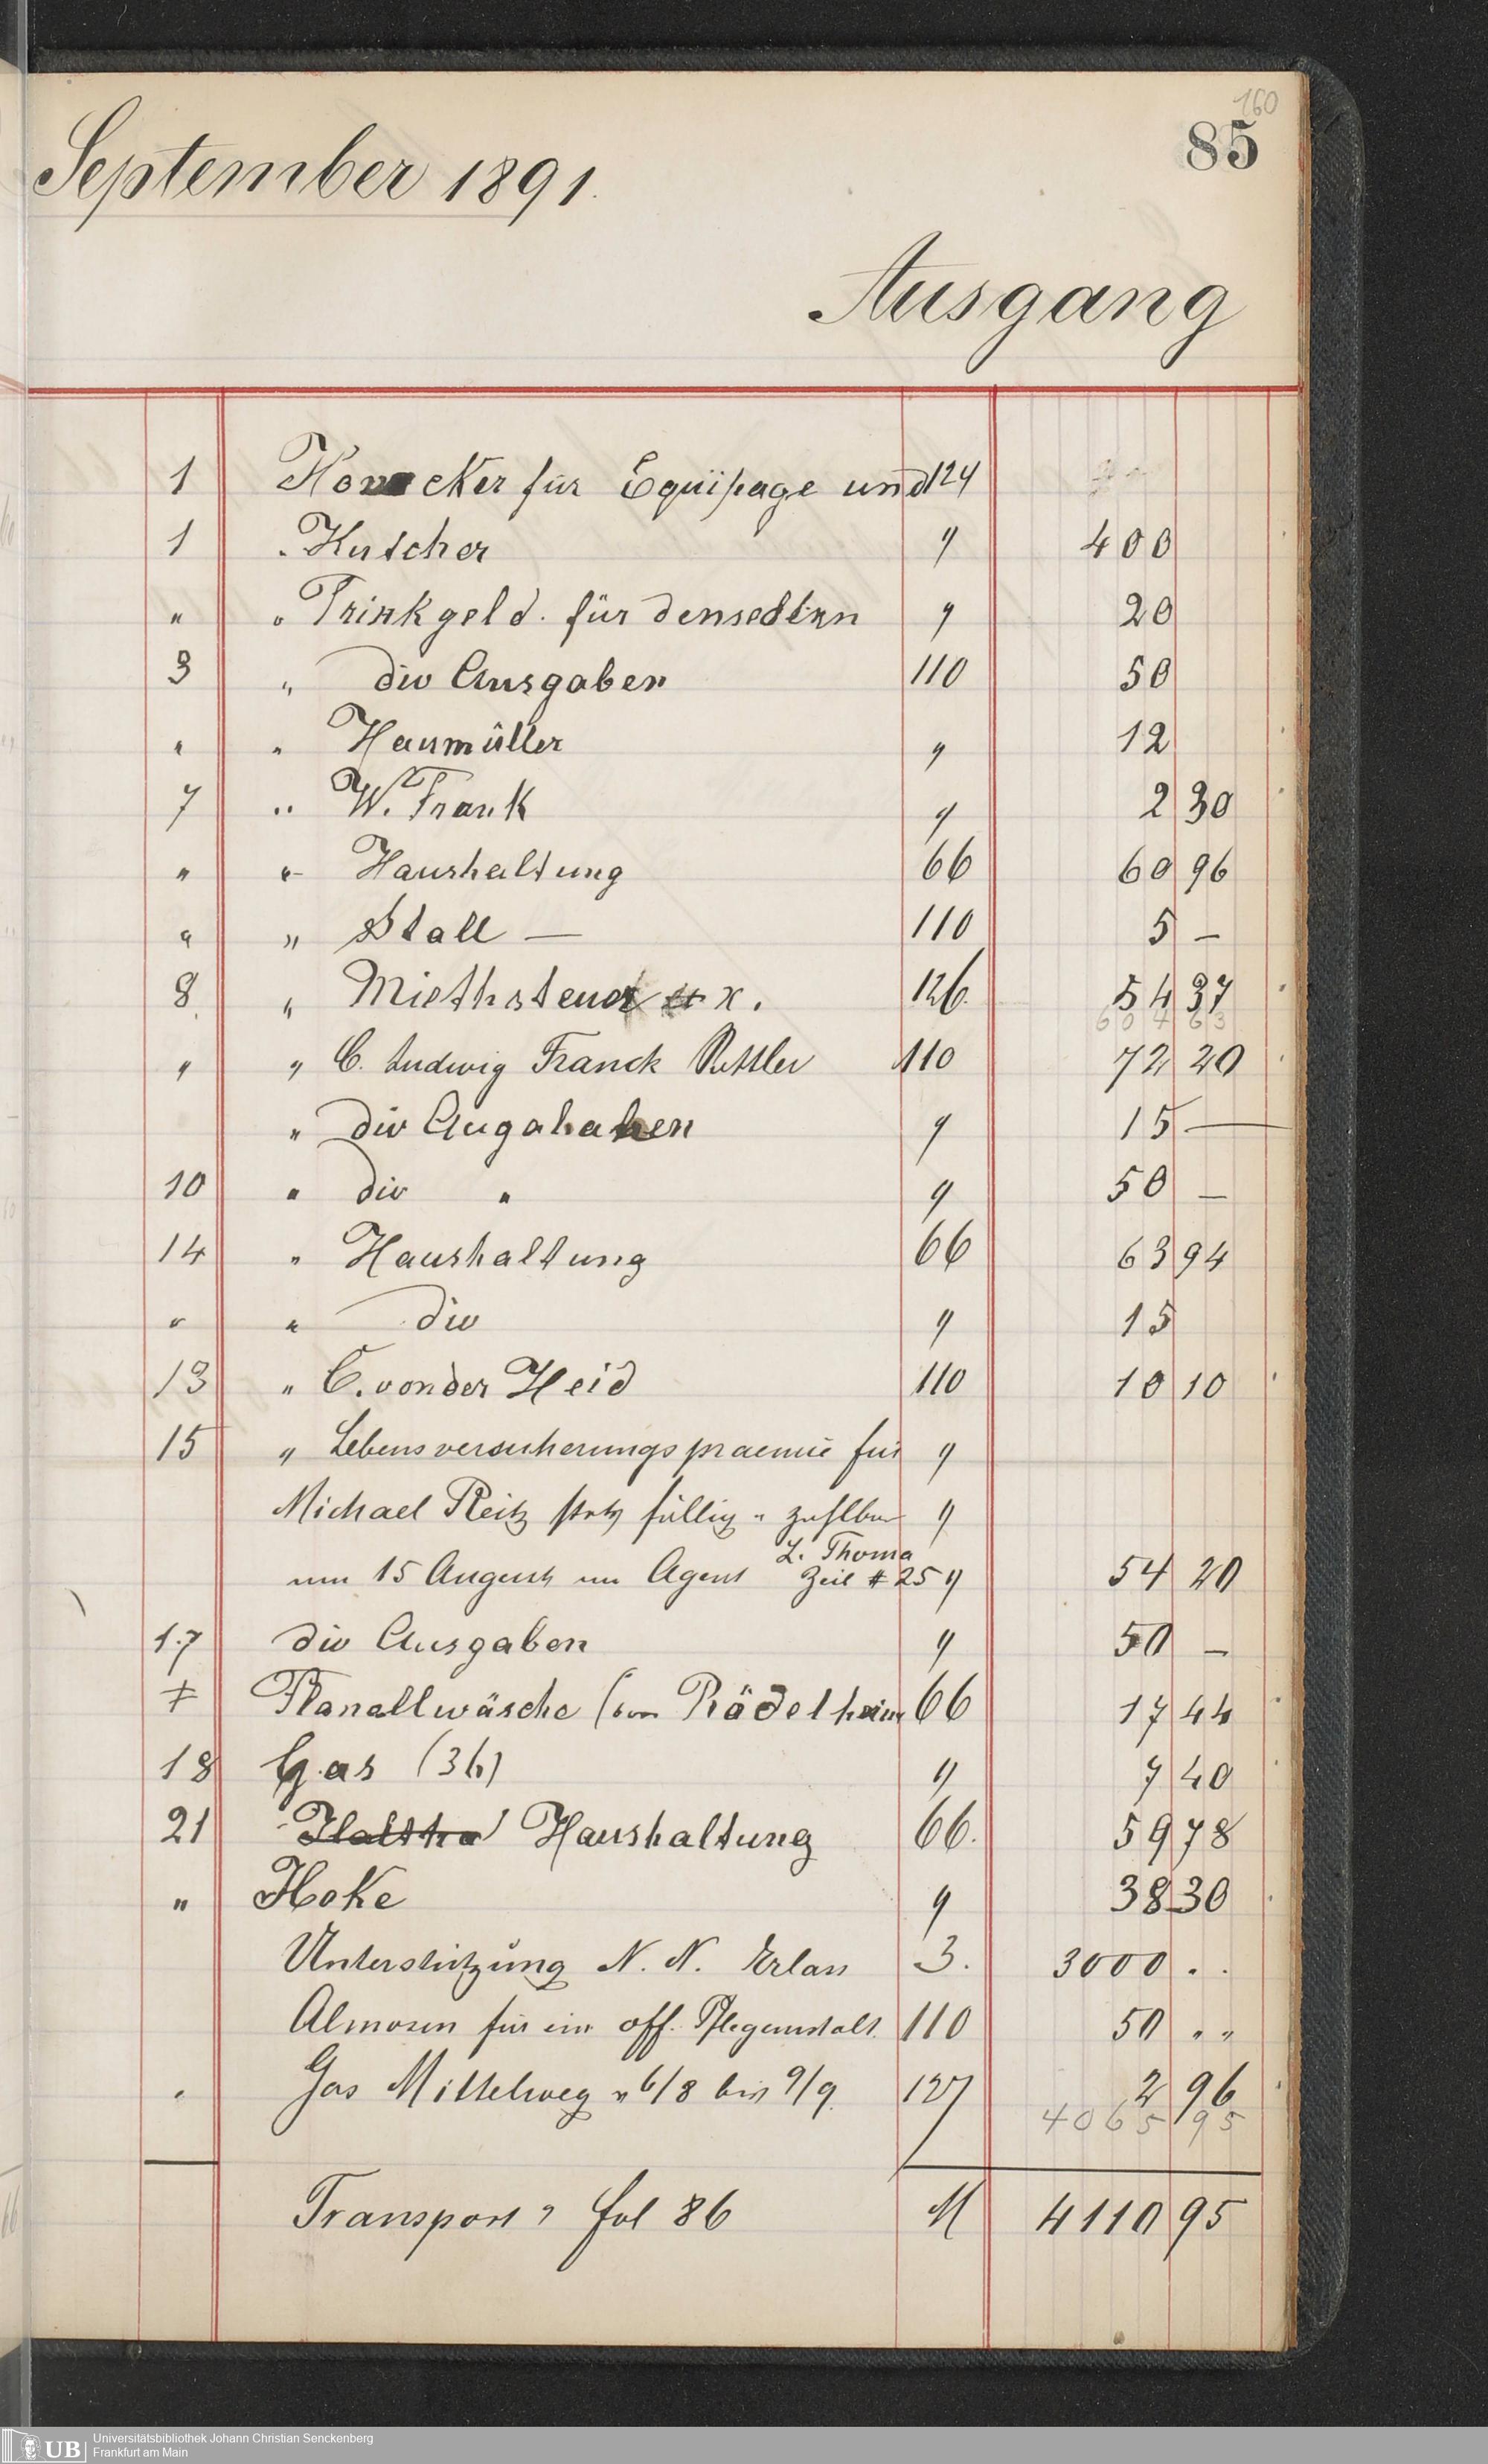 160
85
September 1891.
Ausgang
1 cker für Equipage und 124
1 " Kutscher " 400
" " Trinkgeld. für denselben " 20
3 " div Ausgaben 110 50
" " Haumüller " 12
7 " W. Frank " 2 30
" " Haushaltung 66 60 96
" " Stall — 110 5 –
8 " Miethsteuer x. 126. 54 37
604 63
" " C. Ludwig Franck 110 72 20
" div " 15 —
10 " div " " 50 –
14 " Haushaltung 66 63 94
" " div " 15
13 " C. von der Heid 110 10 10
15 " Lebensversicherungspraemie für "
Michael Reitz fällig "
L. Thoma
15 August Agent Zeil # 25 " 54 20
17 div Ausgaben " 50 –
Flanellwäsche (von Rödelheim 66 17 44
18 Gas (36) " 7 40
21 Haushaltung 66. 59 78
" Hoke " 38 30
Unterstützung N. N. Erlan 3. 3000 . .
Almosen für ein off. Pflegeanstalt 110 50 " "
" Gas Mittelweg " 6/8 bis 9/9. 127 2 96
4065 95
Transport fol 86 M 4110 95
UB Universitätsbibliothek Johann Christian Senckenberg
Frankfurt am Main